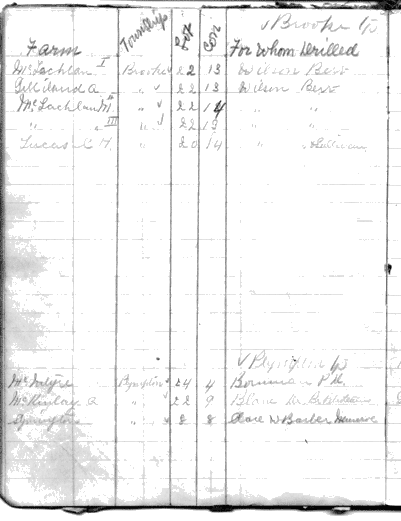 √ Brooke
Farm Township Lot Con For Whom Drilled
McLachlan I Brooke √ 22 13 Wilson Bero
Gilliland A " √ 22 13 Wilson Bero
McLachlan M. II " √ 22 14 " "
" " III " √ 22 13 " "
Lucas C H. " 20 14 "
√ Plympton
McIntyre Plympton √ 24 4 Bowman P M.
McKinlay A " √ 22 9 Blane
Symington " " √ 2 8 Clare W Barber